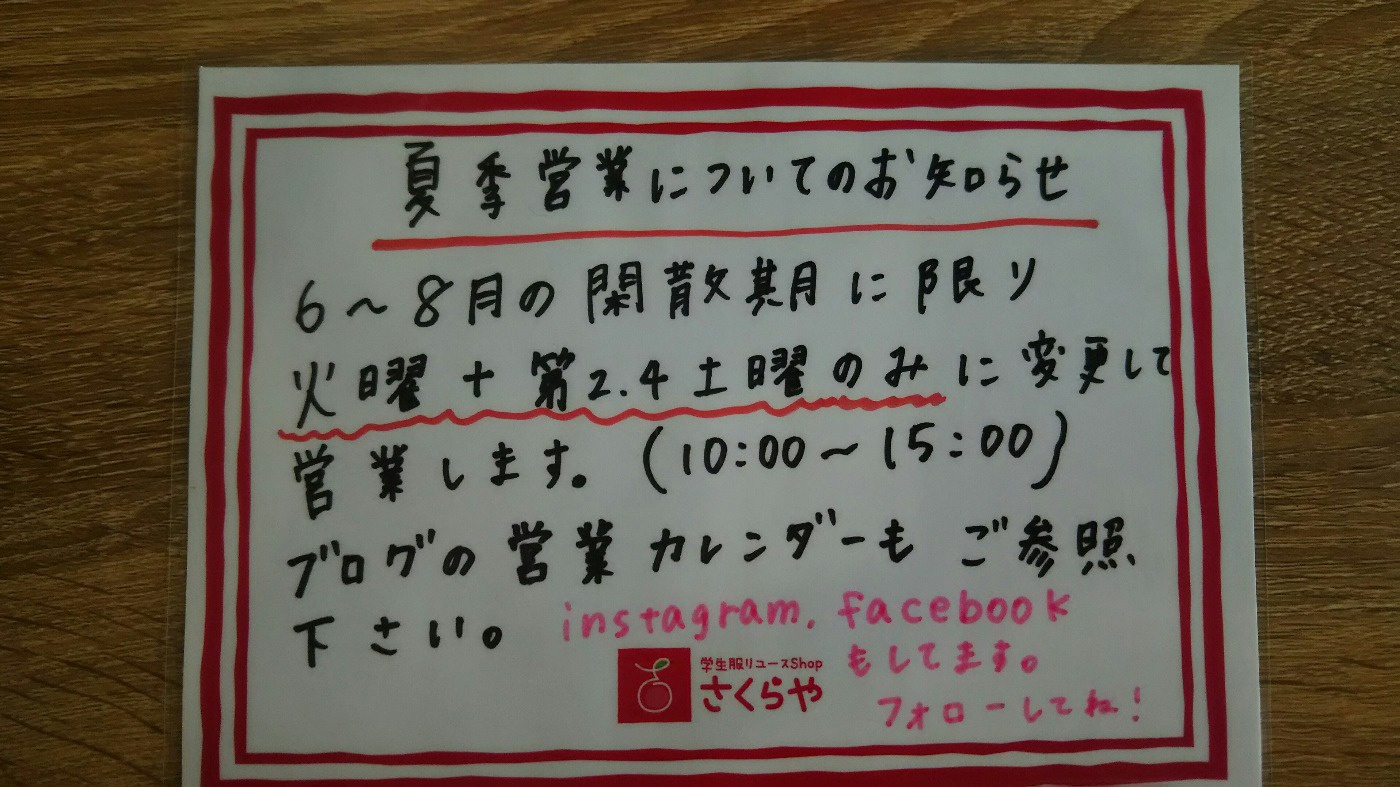 夏季営業についてのお知らせ
6～8月の閑散期に限り
火曜+第2.4土曜のみに変更して
営業します。(10:00～15:00)
ブログの営業カレンダーもご参照
下さい。
instagram. facebook
もしてます。
フォローしてね!
学生服リユースShop
さくらや